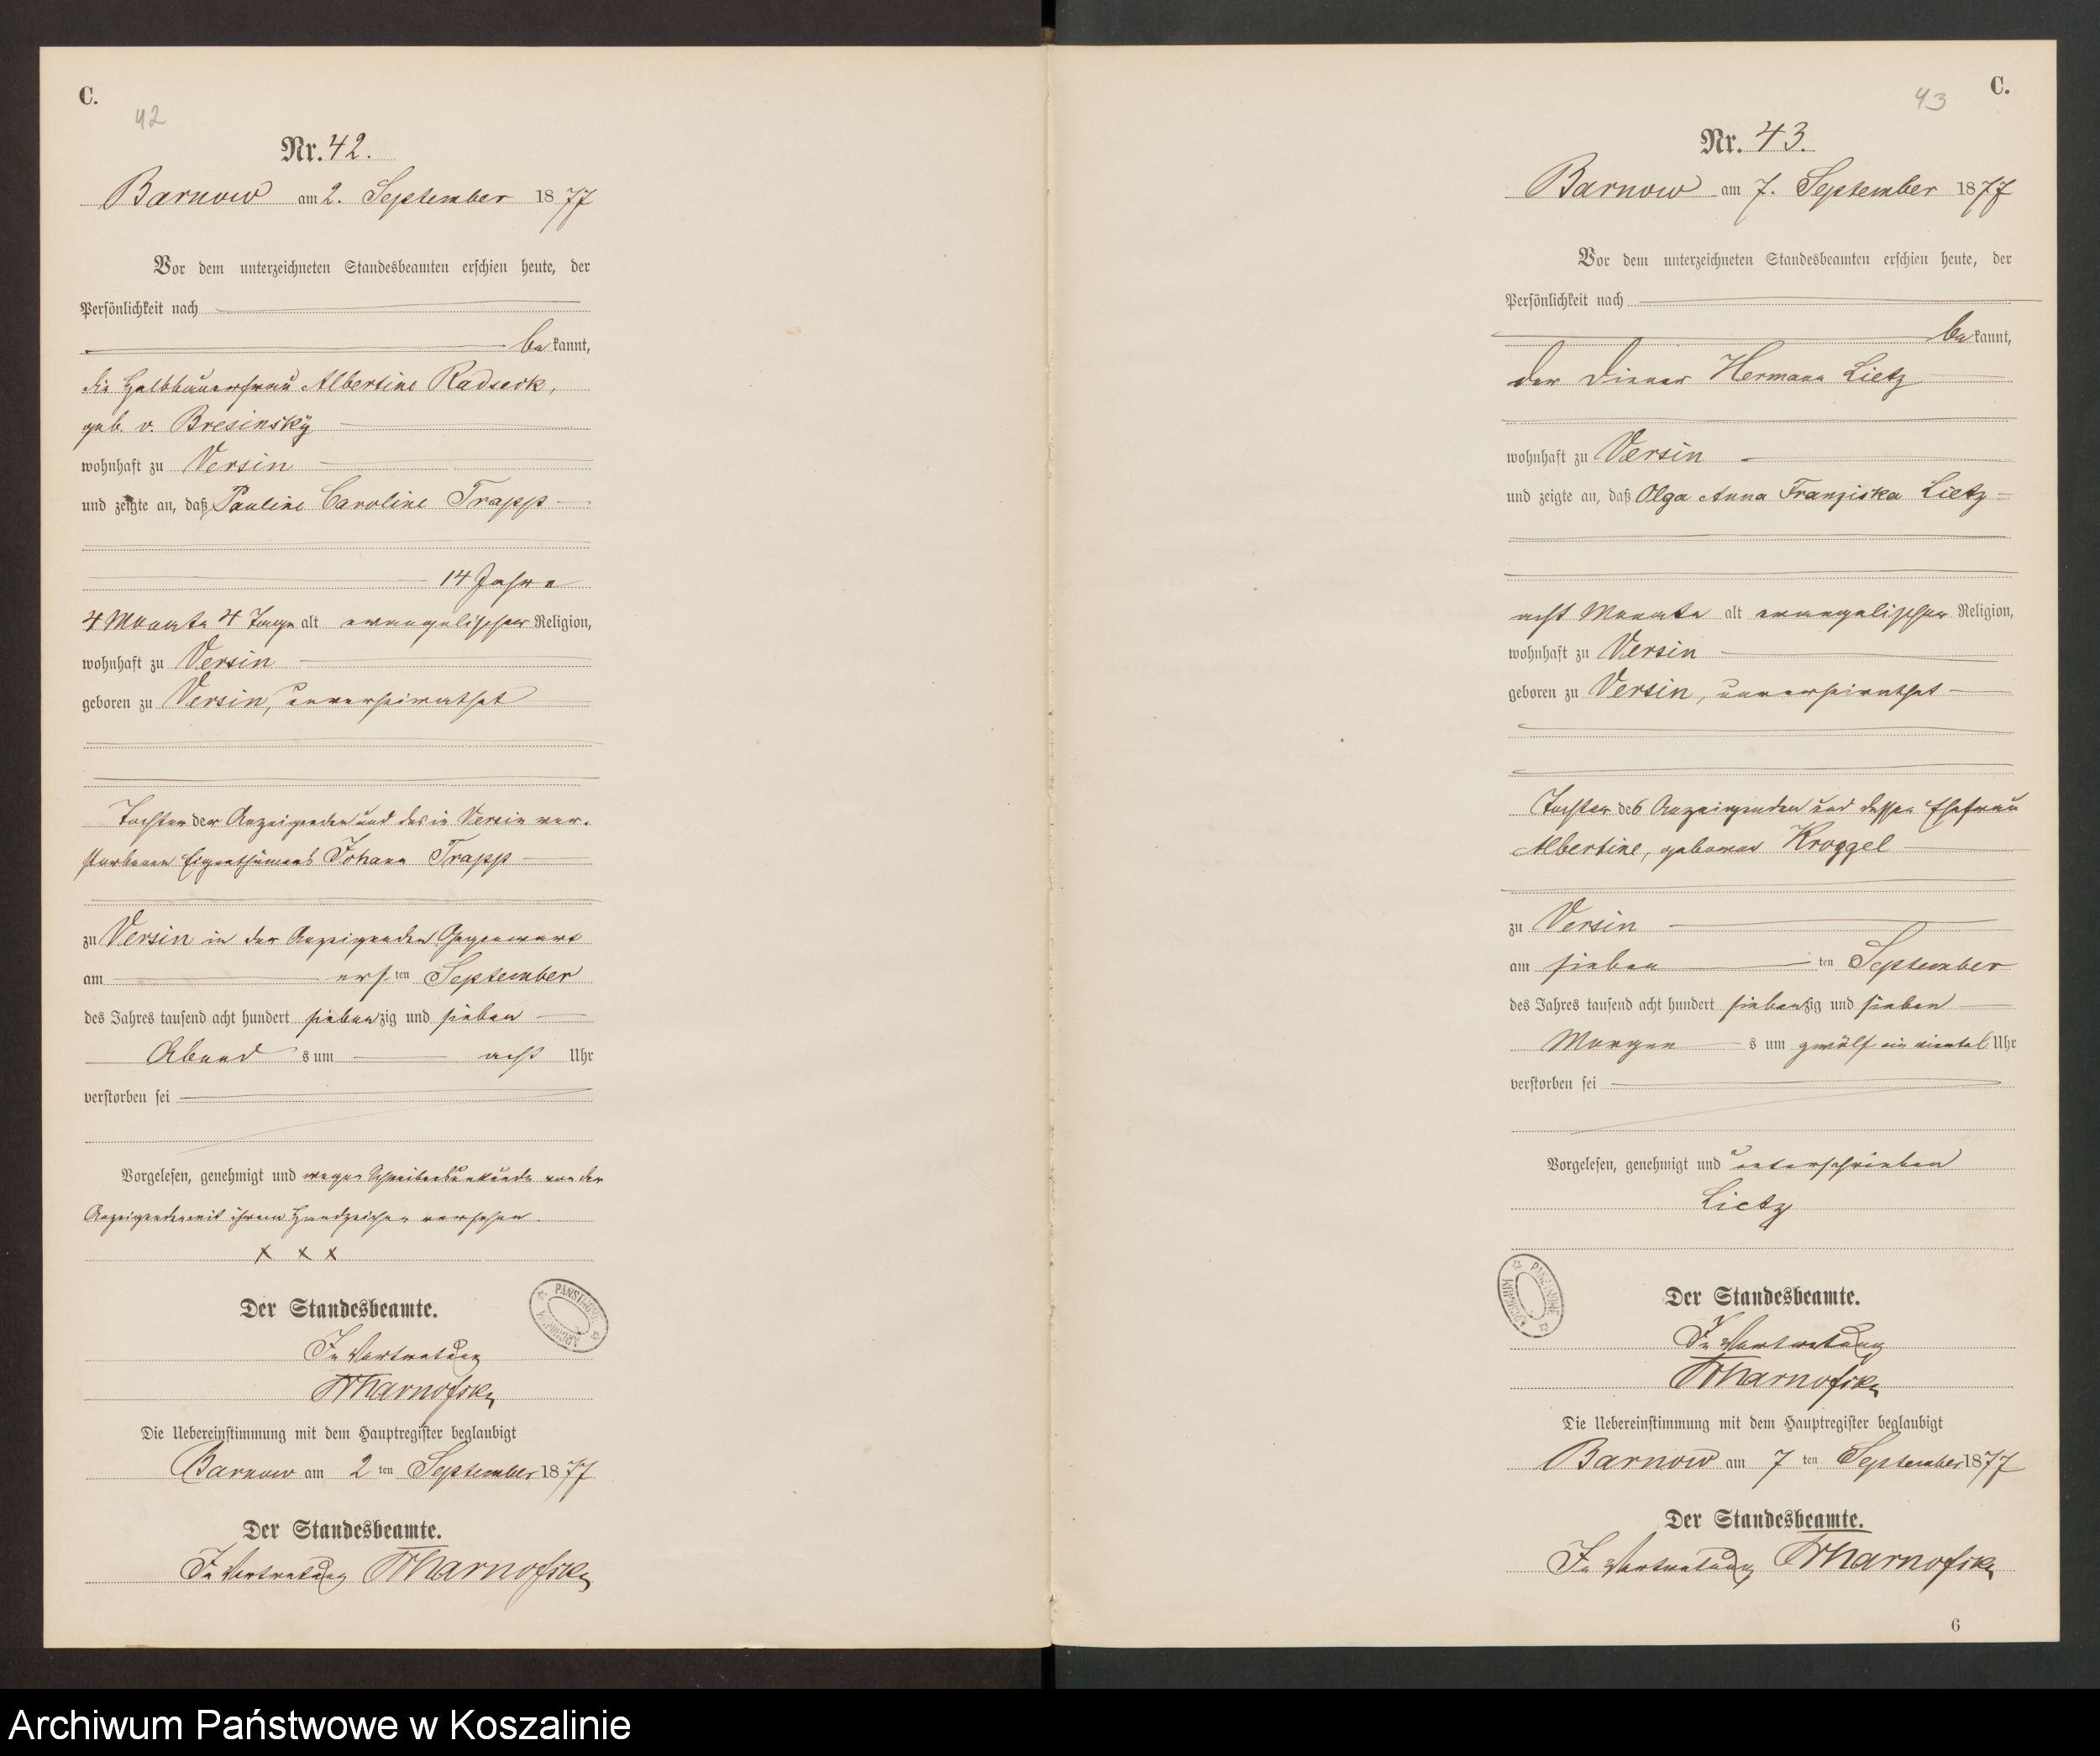 C.
42
Nr. 42.
Barnow am 2. September 1877
Vor dem unterzeichneten Standesbeamten erschien heute, der
Persönlichkeit nach
bekannt,
die Halbbauerfrau Albertine Radseck,
geb. v. Bresinsky
wohnhaft zu Versin
und zeigte an, daß Pauline Caroline Trapp
14 Jahre
4 Monate 4 Tage alt evangelischer Religion,
wohnhaft zu Versin
geboren zu Versin, unverheirathet
Tochter der Anzeigenden und des in Versin ver-
storbenen Eigenthümers Johann Trapp
zu Versin in der Anzeigenden Gegenwart
am ersten September
des Jahres tausend acht hundert siebenzig und sieben
Abends um acht Uhr
verstorben sei
Vorgelesen, genehmigt und wegen Schreibensunkunde von der
Anzeigenden mit ihrem Handzeichen versehen.
x x x
Der Standesbeamte.
In Vertretung
Die Uebereinstimmung mit dem Hauptregister beglaubigt
Barnow am 2ten September 1877
Der Standesbeamte.
In Vertretung
PANSTWOWE ARCHIWUM
C.
43
Nr. 43.
Barnow am 7. September 1877
Vor dem unterzeichneten Standesbeamten erschien heute, der
Persönlichkeit nach
bekannt,
der Diener Hermann Lietz
wohnhaft zu Versin
und zeigte an, daß Olga Anna Franziska Lietz
acht Monate alt evangelischer Religion,
wohnhaft zu Versin
geboren zu Versin, unverheirathet
Tochter des Anzeigenden und dessen Ehefrau
Albertine, geborener Kroggel
zu Versin
am siebenten September
des Jahres tausend acht hundert siebenzig und sieben
Morgens um zwölf ein viertel Uhr
verstorben sei
Vorgelesen, genehmigt und unterschrieben
Lietz
PANSTWOWE ARCHIWUM
Der Standesbeamte.
In Vertretung
Die Uebereinstimmung mit dem Hauptregister beglaubigt
Barnow am 7ten September 1877
Der Standesbeamte.
In Vertretung
6
Archiwum Państwowe w Koszalinie